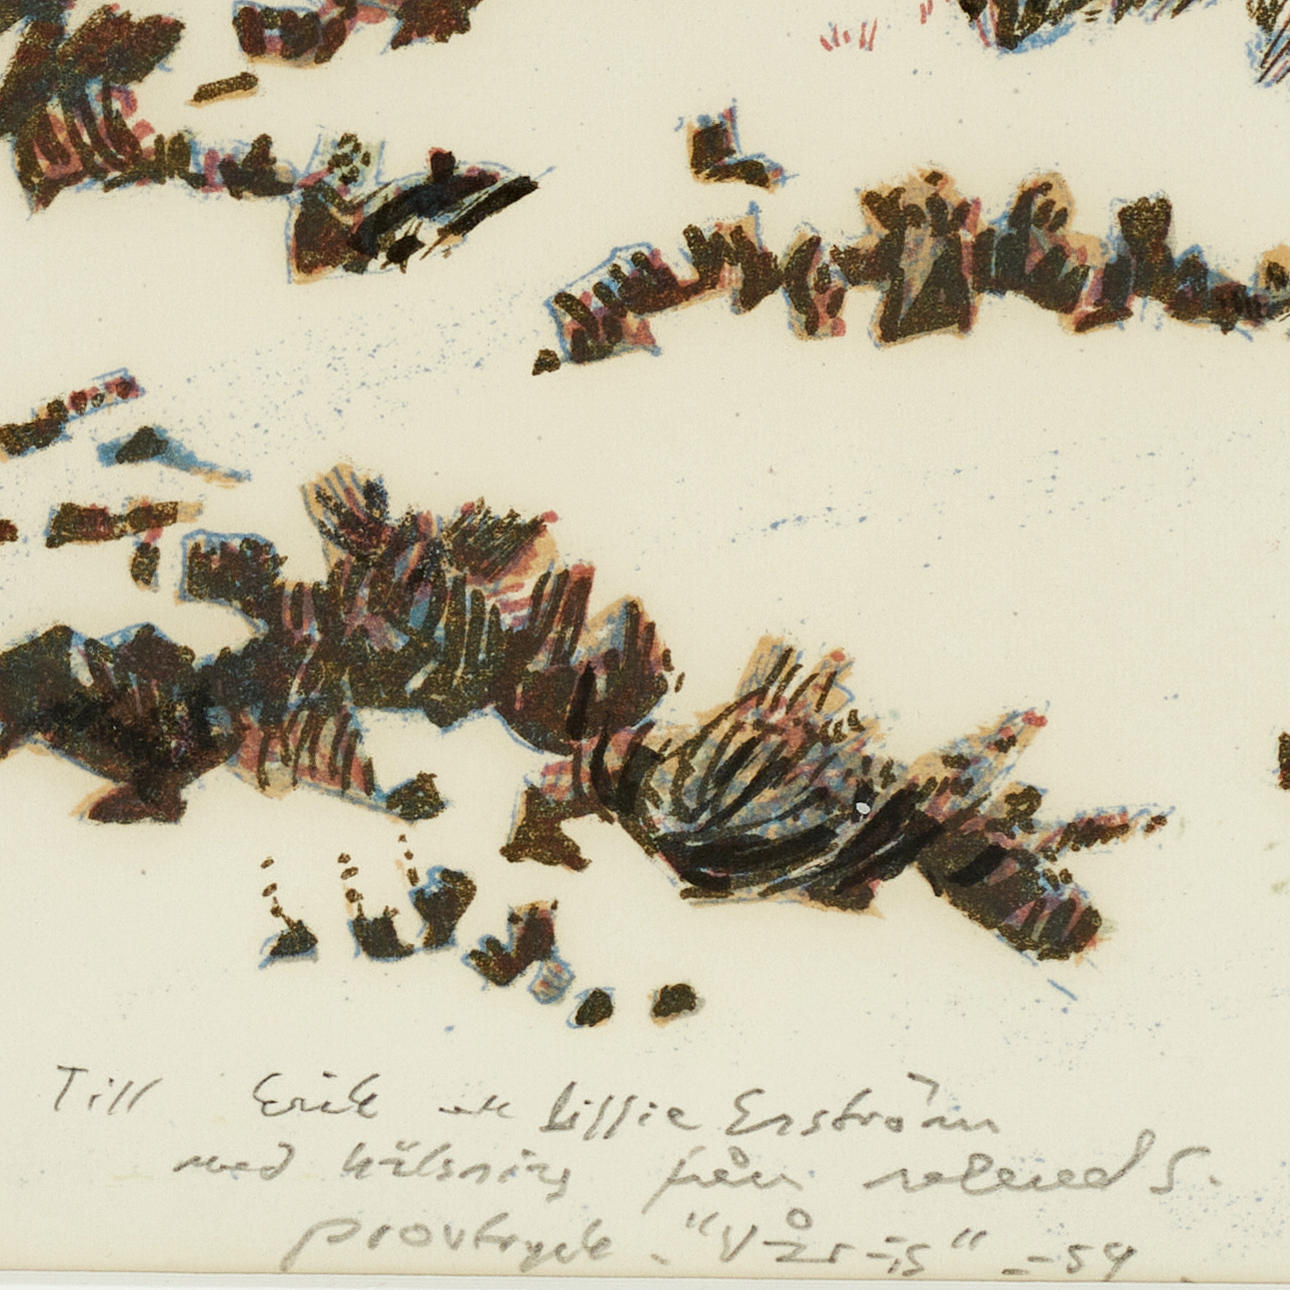 Till Erik och Lissie Enström
med hälsning från Roland S.
provtryck - "Vår-is" -59